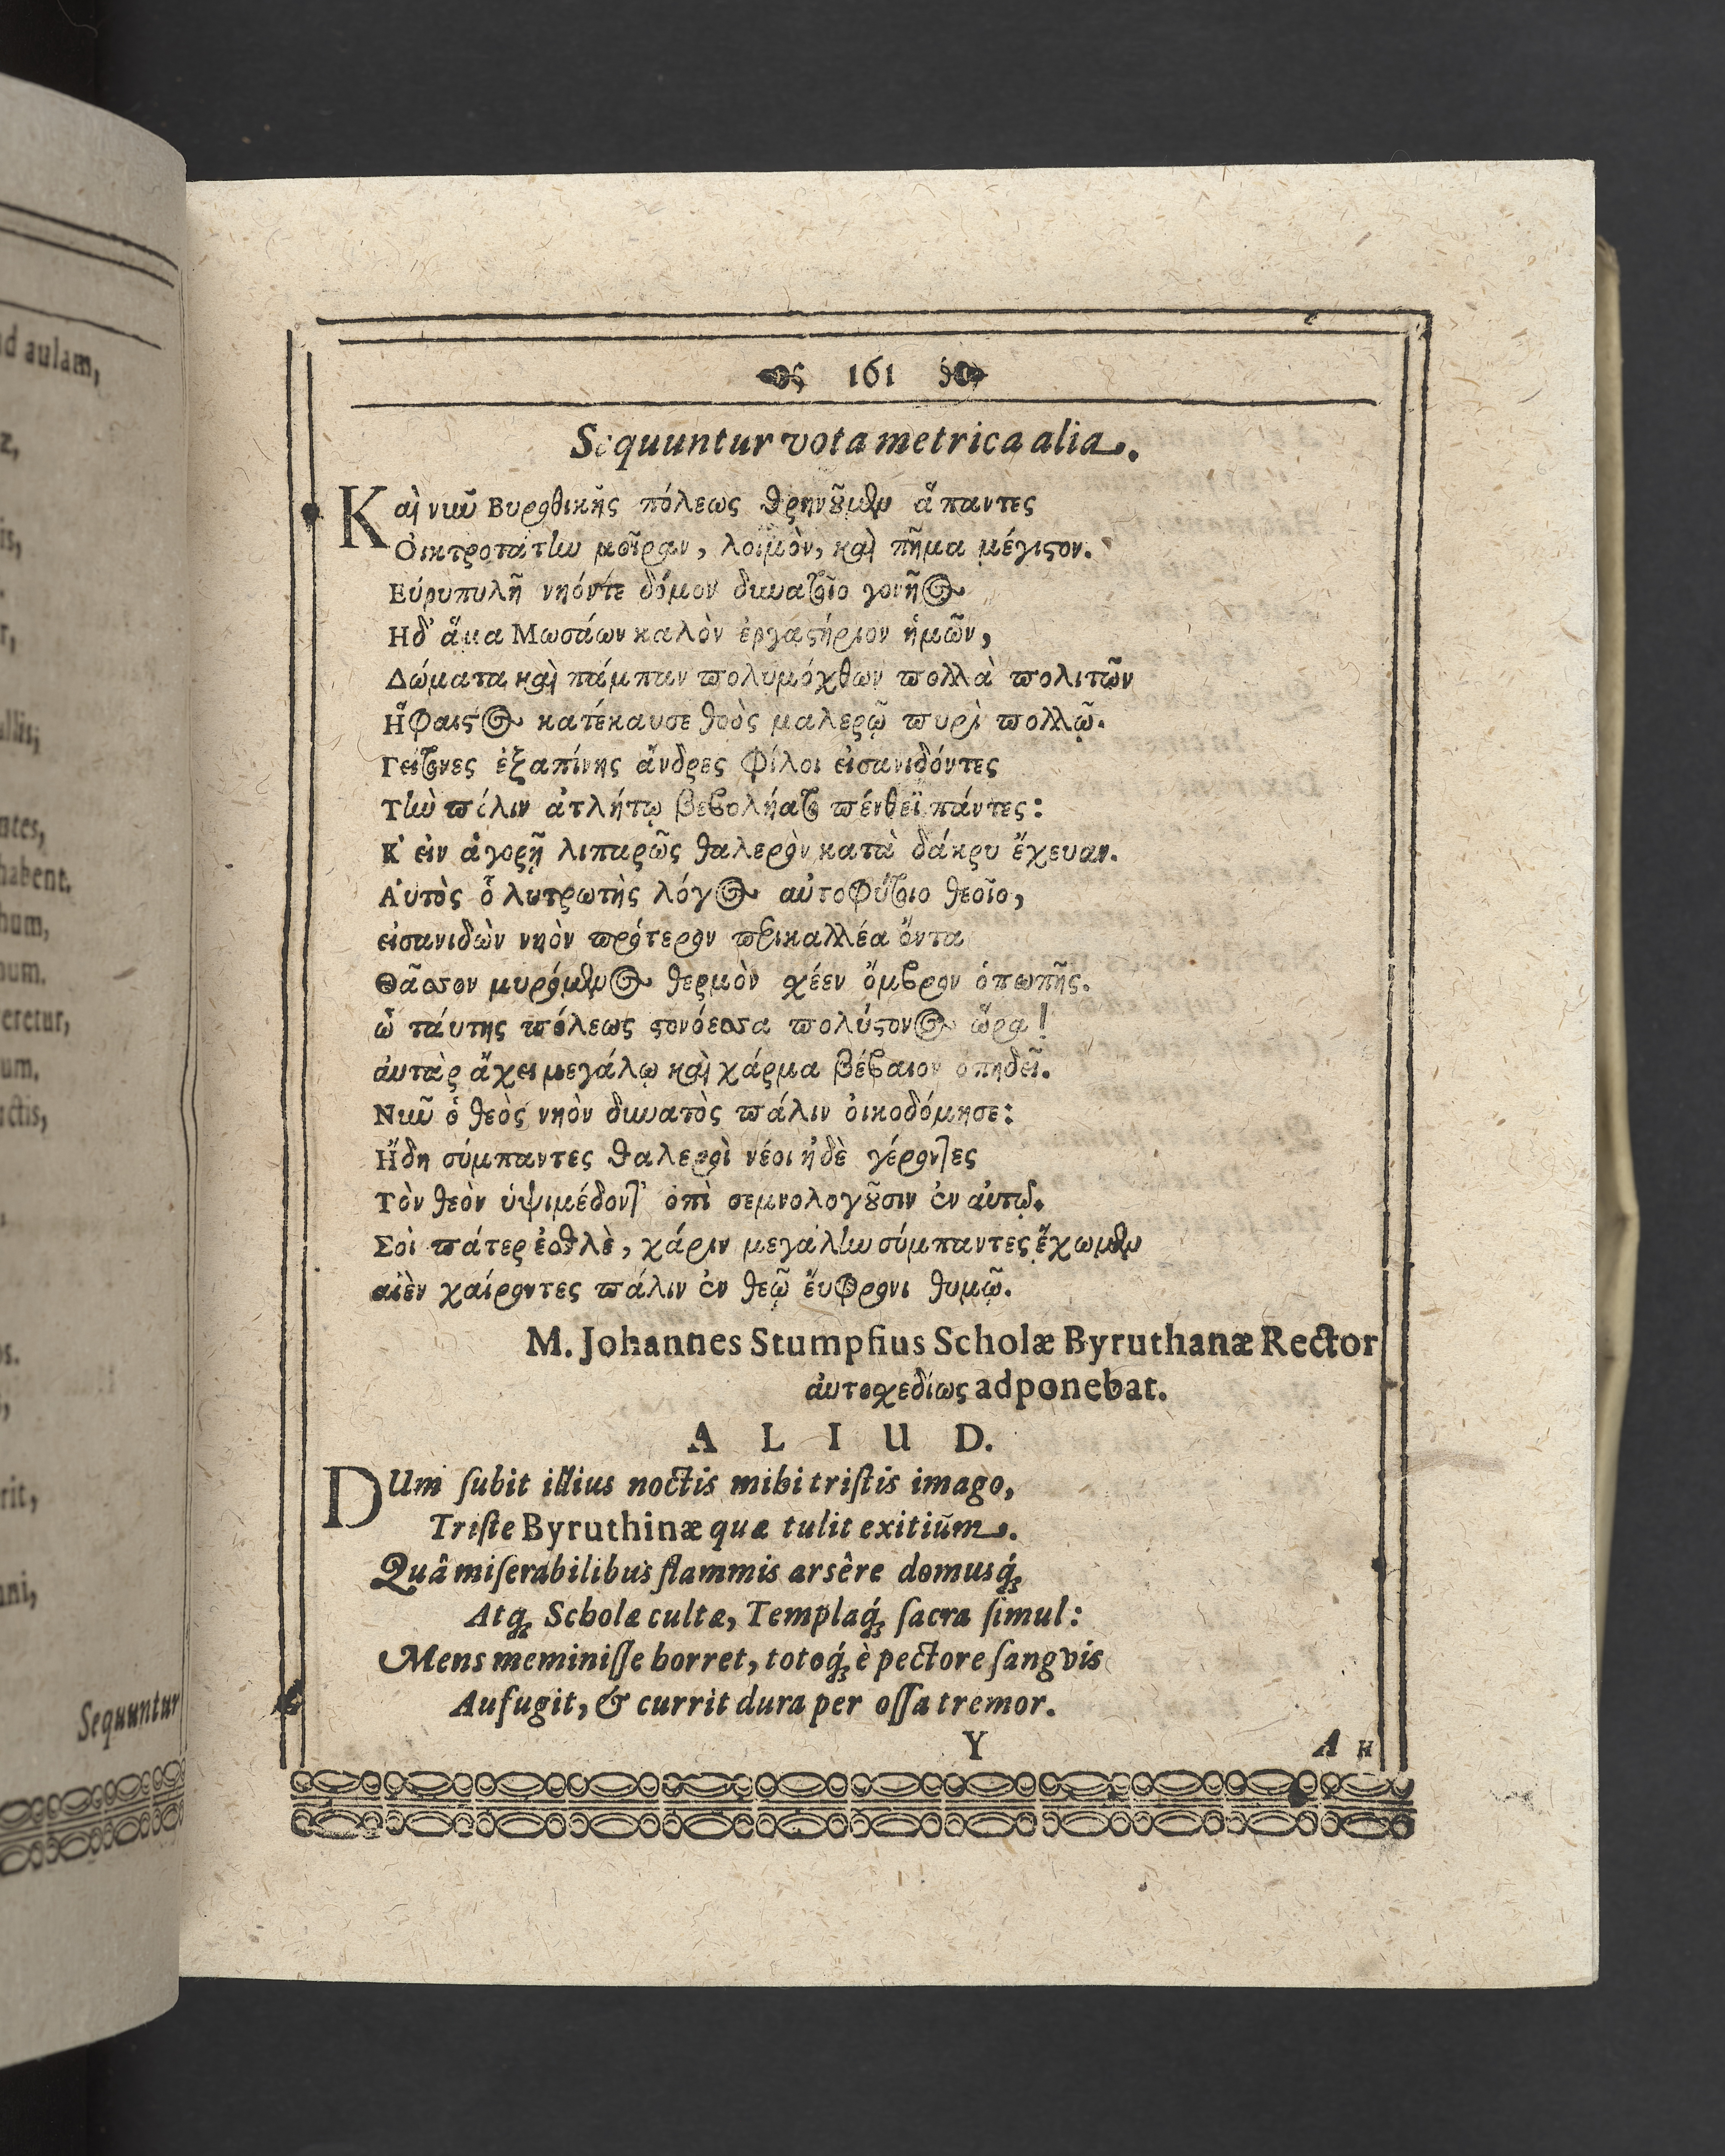 ad aulam,
allis,
habent.
eretur,
Sequuntur
161
Sequuntur vota metrica alia.
Καὶ νιῦ Βυροθικῆς πόλεως θρηνοῦμθμ ἅπαντες
Οἰκτροτάτlω μοῖραν, λοιμὸν, καὶ πῆμα μέγιςον.
Εὐρυπυλῆ νηόντε δόμον διωατοῖο γονῆος
Ηδ' ἅμα Μωσάων καλὸν ἐργαςήριον ἡμῶν,
Δώματα καὶ πάμπαν πολυμόχθων πολλὰ πολιτῶν
Ηφαιςος κατέκαυσε θοὸς μαλερῷ πυρὶ πολλῷ.
Γείτονες ἐξαπίνης ἄνδρες φίλοι εἰσανιδόντες
Τlὼ πόλιν ἀτλήτῳ βεβολήατο πένθεϊ πάντες:
Κ' εἰν ἀγορῇ λιπαρῶς θαλερὸν κατὰ δάκρυ ἔχευαν.
Αὐτὸς ὁ λυτρωτὴς λόγος αὐτοφύτοιο θεοῖο,
εἰσανιδὼν νηὸν πρότερον περικαλλέα ὄντα
Θᾶσσον μυρόμθμος θερμὸν χέεν ὄμβρον ὀπωπῆς.
ὦ τάυτης πόλεως ςονόεσσα πολύςονος ὥρα!
ἀυτὰρ ἄχει μεγάλῳ καὶ χάρμα βέβαιον ὀπηδεῖ.
Νιῦ ὁ θεὸς νηὸν διωατὸς πάλιν οἰκοδόμησε:
Ἤδη σύμπαντες θαλεροὶ νέοι ἠδὲ γέροντες
Τὸν θεὸν ὑψιμέδοντ' ὀπὶ σεμνολογοῦσιν ἐν ἀυτῷ.
Σοὶ πάτερ ἐσθλὲ, χάριν μεγάλlω σύμπαντες ἔχωμθμ
αἰὲν χαίροντες πάλιν ἐν θεῷ ἔυφρονι θυμῷ.
M. Johannes Stumpfius Scholæ Byruthanæ Rector
ἀυτοσχεδίως adponebat.
A L I U D.
DUm ſubit illius noctis mihi triſtis imago,
Triſte Byruthinæ quæ tulit exitiũm.
Quâ miſerabilibus flammis arsêre domusq́;
Atq; Scholæ cultæ, Templaq́; ſacra ſimul:
Mens meminiſſe horret, totoq́; è pectore ſangvis
Aufugit, & currit dura per oſſa tremor.
Y
A H